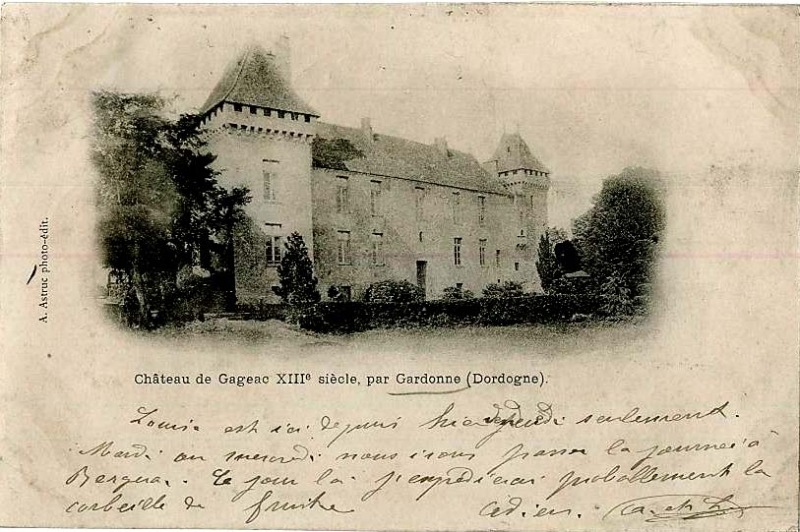 A. Astruc photo-édit.
Château de Gageac XIIIe siècle, par Gardonne (Dordogne).
Louise est ici depuis hier seulement.
Mardi ou mercredi nous irons passer la journée à
Bergerac. Ce jour là j'expédierai probablement la
corbeille de fruits Adieu.